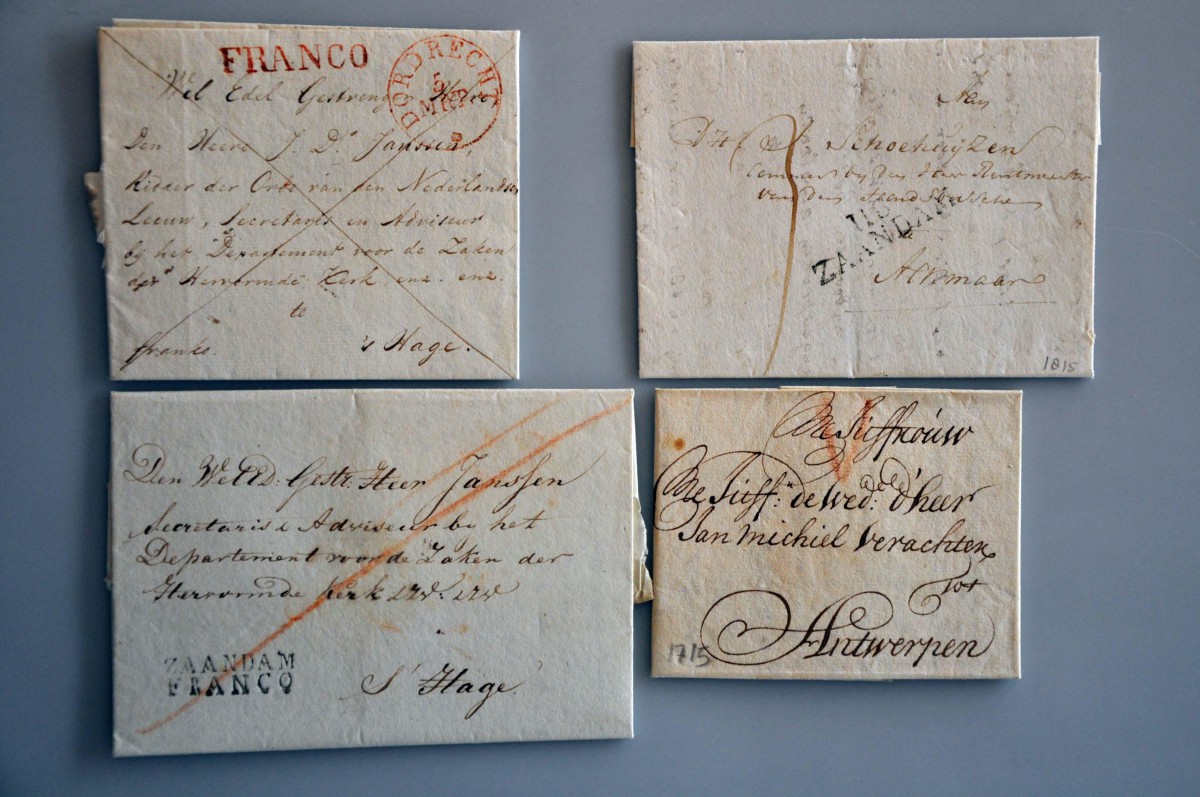 FRANCO
DORDRECHT
5
MRT
Wel Edel Gestrenge Heere
Den Heere J. D. Janssen,
Ridder der Orde van den Nederlandsen
Leeuw, Secretaris en Adviseur
by het Departement voor de Zaken
der Hervormde Kerk enz. enz.
te
franko. 's Hage.
Aan
Schoehuijzen
Rentmeester
118
ZAANDAM
te
Alkmaar
1815
Den Weled: Gestr: Heer Janssen
Secretaris & Adviseur by het
Departement voor de Zaken der
Hervormde Kerk
ZAANDAM
FRANCO
S' Hage.
Me Juffrouw
Me Juff: de wed: d'heer
Jan Michiel verachten
Tot
Antwerpen
1715